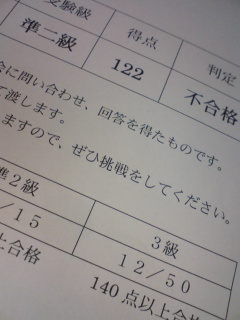 受験級 得点 判定
準二級 122 不合格
会に問い合わせ、回答を得たものです。
て渡します。
ますので、ぜひ挑戦をしてください。
準2級 3級
/15 12/50
上合格 140点以上合格